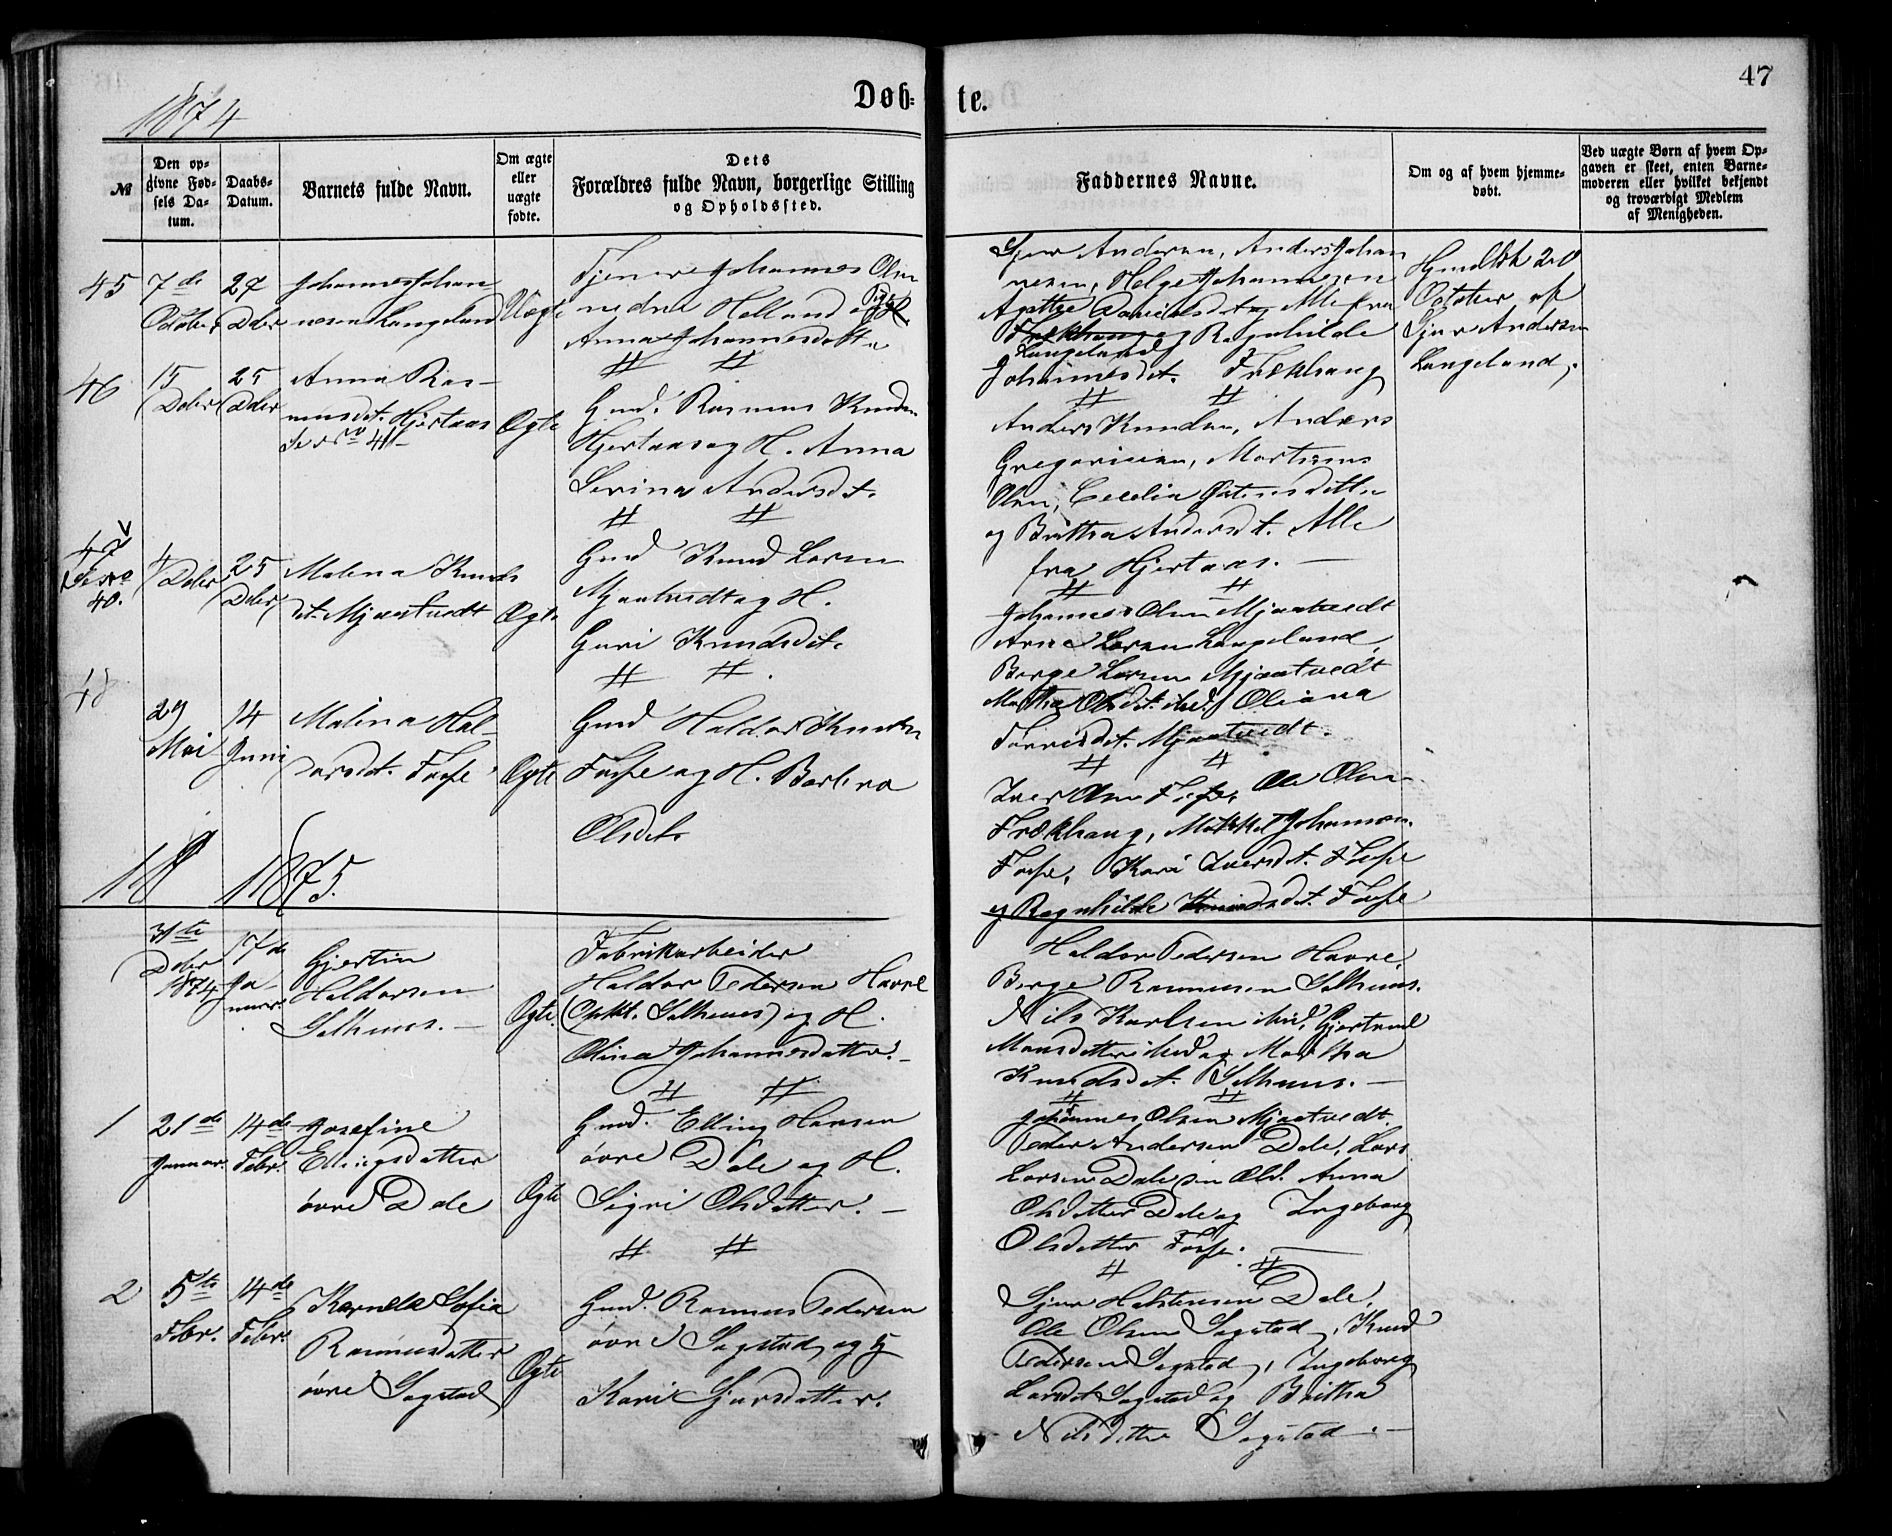 1874
Døb-te.
47
№
Den op-
givne Fød-
sels Da-
tum.
Daabs-
Datum.
Barnets fulde Navn.
Om ægte
eller
uægte
fødte.
Dets
Forældres fulde Navn, borgerlige Stilling
og Opholdssted.
Faddernes Navne.
Om og af hvem hjemme-
døbt.
Ved uægte Børn af hvem Op-
gaven er skeet, enten Barne-
moderen eller hvilket bekjendt
og troværdigt Medlem
af Menigheden.
45
7de
October
27
Dcbr
Johannes Johan-
nesen Langeland
Uægte
Tjener Johannes Olsen
nedre Helland og Pige
Anna Johannesdatter
Gjur Andersen, Anders Johan
nesen, Helge Johannesen
Agathe Danielsdt og Alle fra
Frækhaug og Ragnhilde
Langeland
Johannesdt. Frækhaug
Hjmdøbt 20
October af
Gjur Andersen
Langeland,
46
15
Dcbr
25
Dcbr
Anna Ras-
musdt. Hjertaas
Se No 41
Ægte
Gmd. Rasmus Knudsen
Hjertaas og H. Anna
Serina Andersdt.
Anders Knudsen, Anders
Gregoriusen, Martinus
Olsen, Cecelia Ostensdatter
og Brittha Andersdt. Alle
fra Hjertaas. —
47
Se No
40.
4
Dcbr
25
Dcbr
Malena Knuds
dt. Mjaatvedt
Ægte
Gmd Knud Larsen
Mjaatvedt og H.
Guri Knudsdt.
Johannes Olsen Mjaatvedt
Arne Larsen Langeland,
Børge Larsen Mjaatvedt
Martha Olsdt. ibid, Oliana
Mjaatvedt.
48
29
Mai
14
Juni
Malina Hal-
dorsdt. Fosse
Ægte
Gmd Haldor Knudsen
Fosse og H. Barbra
Olsdt.
Iver Olsen Fosse, Ole Olsen
Frækhaug, Mikkel Johannesen
Fosse, Kari Iversdt. Fosse
og Ragnhilde Knudsdt. Fosse
18 1875.
31te
Dcbr
1874
17de
Ja-
nuar.
Gjertin
Haldorsen
Salhuus. —
Ægte.
Fabrikarbeider
Haldor Pedersen Havre
(Ophl. Salhuus) og H.
Olina Johannesdatter. —
Haldor Pedersen Havre,
Børge Rasmusen Salhuus.
Nils Karlsen ibid, Gjertrud
Monsdatter ibid og Martha
Knudsdt. Salhuus. —
1
21de
Januar.
14de
Febr.
Josefine
Ellingsdatter
øvre Dale
Ægte
Gmd. Elling Hansen
øvre Dale og H.
Sigri Olsdatter. —
Johannes Olsen Mjaatvedt.
Peder Andersen Dale, Lars
Larsen Dale Anna
Olsdatter Dale og Ingeborg
Olsdatter Fosse. —
2
5te
Febr.
14de
Febr.
Kornelia Sofia
Rasmusdatter
øvre Sagstad
Ægte
Gmd. Rasmus Pedersen
øvre Sagstad og H
Kari Gjursdatter.
Gjur Halstensen Dale,
Ole Olsen Sagstad, Knud
Pedersen Sagstad, Ingeborg
Larsdt Sagstad og Brittha
Nilsdatter Sagstad. —